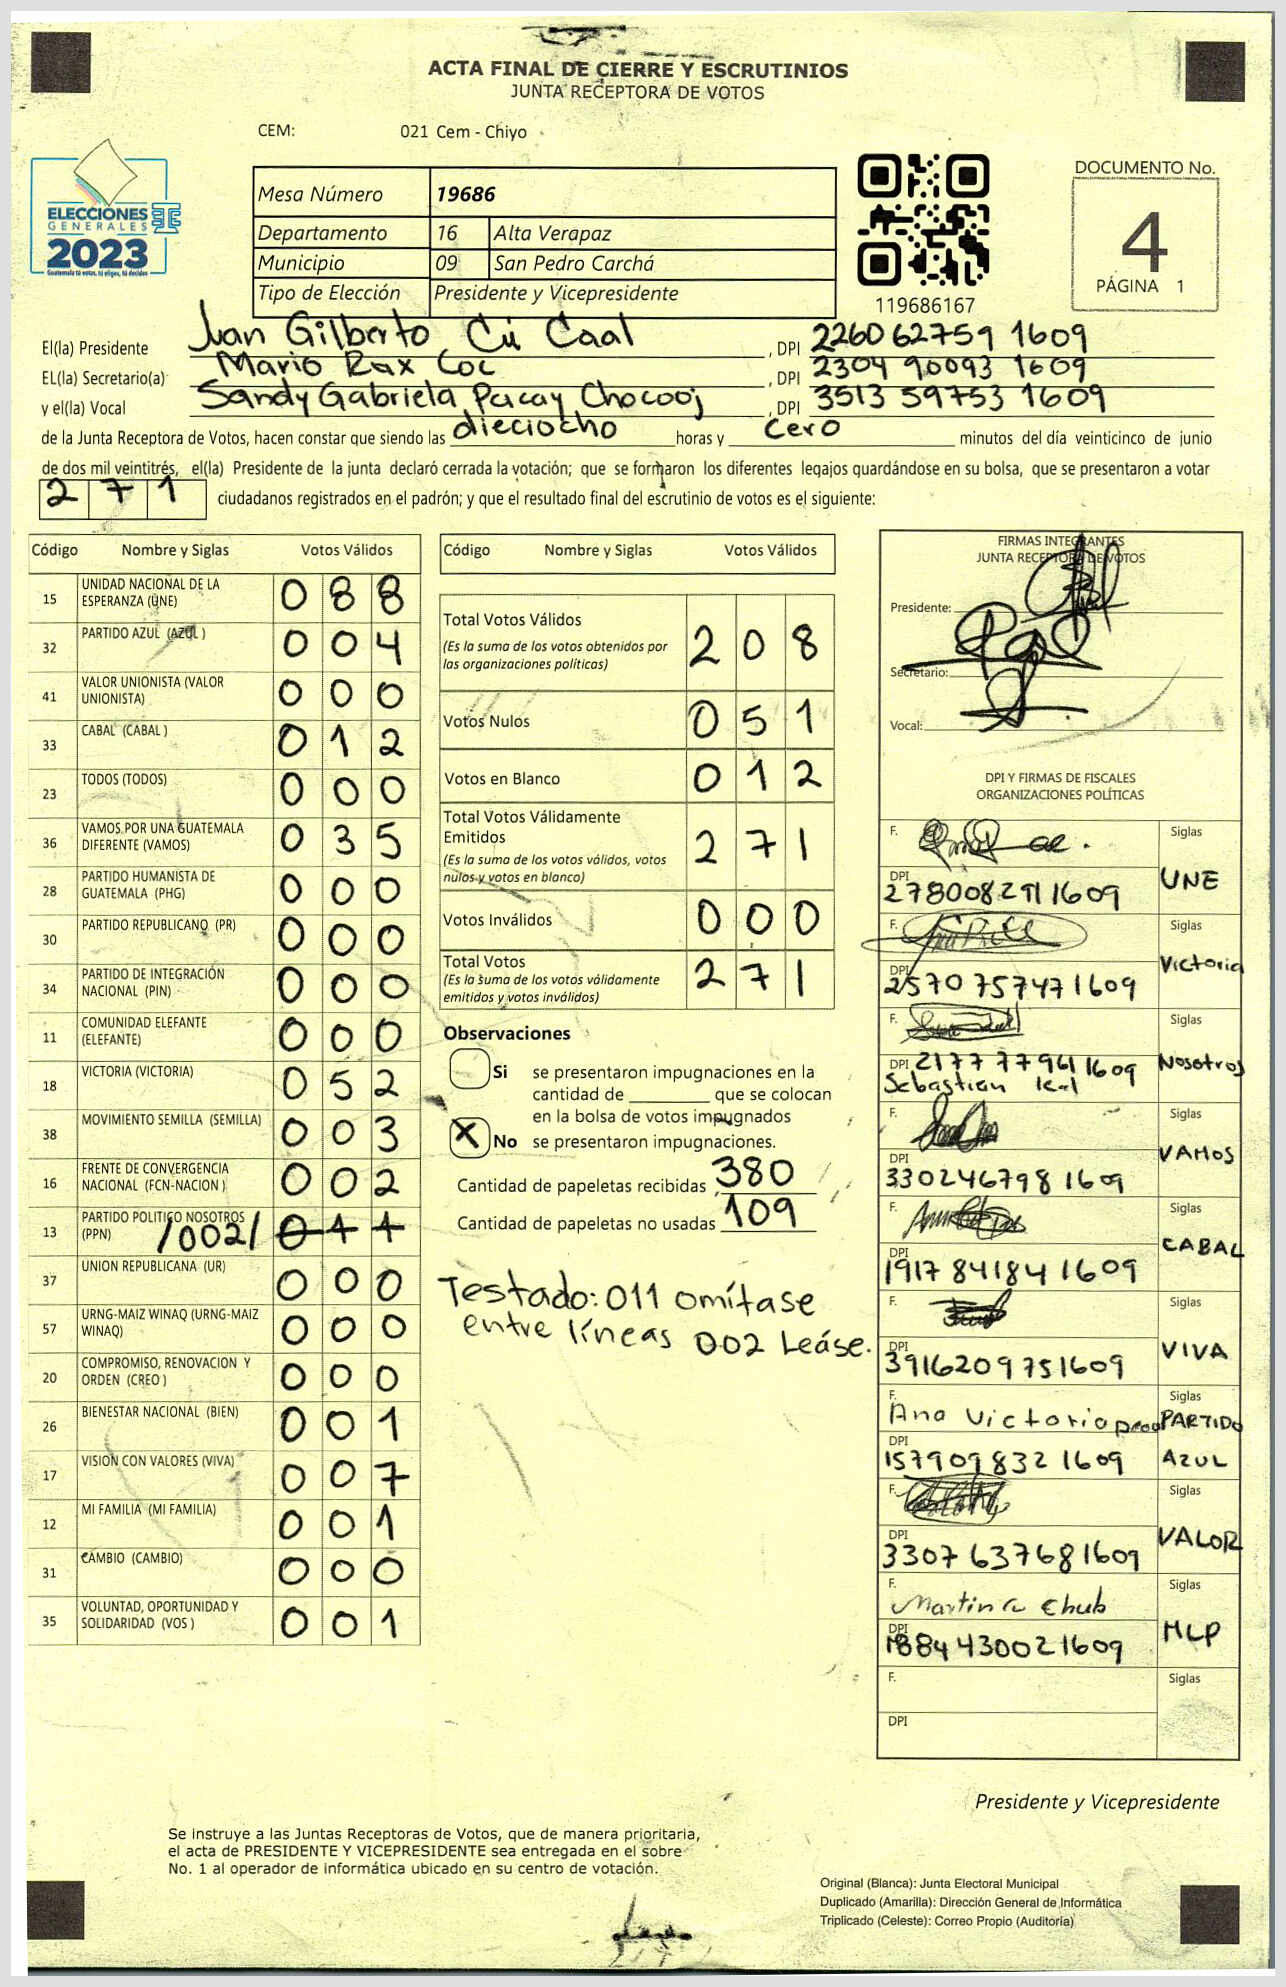 ACTA FINAL DE CIERRE Y ESCRUTINIOS
JUNTA RECEPTORA DE VOTOS
CEM: 021 Cem - Chiyo
ELECCIONES
GENERALES
2023
Guatemala tú votas, tú eliges, tú decides
Mesa Número 19686
Departamento 16 Alta Verapaz
Municipio 09 San Pedro Carchá
Tipo de Elección Presidente y Vicepresidente
119686167
DOCUMENTO No.
4
PÁGINA 1
El(la) Presidente Juan Gilberto Cú Caal , DPI 2260 62759 1609
EL(la) Secretario(a) Mario Rax Coc , DPI 2304 90093 1609
y el(la) Vocal Sandy Gabriela Pacay Chocooj , DPI 3513 59753 1609
de la Junta Receptora de Votos, hacen constar que siendo las dieciocho horas y cero minutos del día veinticinco de junio
de dos mil veintitrés, el(la) Presidente de la junta declaró cerrada la votación; que se formaron los diferentes legajos quardándose en su bolsa, que se presentaron a votar
271 ciudadanos registrados en el padrón; y que el resultado final del escrutinio de votos es el siguiente:
Código Nombre y Siglas Votos Válidos
15 UNIDAD NACIONAL DE LA ESPERANZA (UNE) 088
32 PARTIDO AZUL (AZUL ) 004
41 VALOR UNIONISTA (VALOR UNIONISTA) 000
33 CABAL (CABAL ) 012
23 TODOS (TODOS) 000
36 VAMOS POR UNA GUATEMALA DIFERENTE (VAMOS) 035
28 PARTIDO HUMANISTA DE GUATEMALA (PHG) 000
30 PARTIDO REPUBLICANO (PR) 000
34 PARTIDO DE INTEGRACIÓN NACIONAL (PIN) 000
11 COMUNIDAD ELEFANTE (ELEFANTE) 000
18 VICTORIA (VICTORIA) 052
38 MOVIMIENTO SEMILLA (SEMILLA) 003
16 FRENTE DE CONVERGENCIA NACIONAL (FCN-NACION ) 002
13 PARTIDO POLITICO NOSOTROS (PPN) /002/ 011
37 UNION REPUBLICANA (UR) 000
57 URNG-MAIZ WINAQ (URNG-MAIZ WINAQ) 000
20 COMPROMISO, RENOVACION Y ORDEN (CREO ) 000
26 BIENESTAR NACIONAL (BIEN) 001
17 VISION CON VALORES (VIVA) 007
12 MI FAMILIA (MI FAMILIA) 001
31 CAMBIO (CAMBIO) 000
35 VOLUNTAD, OPORTUNIDAD Y SOLIDARIDAD (VOS ) 001
Código Nombre y Siglas Votos Válidos
Total Votos Válidos 208
(Es la suma de los votos obtenidos por
las organizaciones políticas)
Votos Nulos 051
Votos en Blanco 012
Total Votos Válidamente
Emitidos 271
(Es la suma de los votos válidos, votos
nulos y votos en blanco)
Votos Inválidos 000
Total Votos 271
(Es la suma de los votos válidamente
emitidos y votos inválidos)
Observaciones
Si se presentaron impugnaciones en la
cantidad de ________ que se colocan
en la bolsa de votos impugnados
X No se presentaron impugnaciones.
Cantidad de papeletas recibidas 380
Cantidad de papeletas no usadas 109
Testado: 011 omítase
entre líneas 002 Leáse.
FIRMAS INTEGRANTES
JUNTA RECEPTORA DE VOTOS
Presidente:
Secretario:
Vocal:
DPI Y FIRMAS DE FISCALES
ORGANIZACIONES POLÍTICAS
F. Siglas
DPI 2780082911609 UNE
F. Siglas
DPI 2570 75747 1609 Victoria
F. Siglas
DPI 2177 77961 1609 Nosotros
Sebastian Ical
F. Siglas
DPI 330246798 1609 VAMOS
F. Siglas
DPI 1917 84184 1609 CABAL
F. Siglas
DPI 3916209751609 VIVA
F. Ana Victoria Siglas
PARTIDO
DPI 157909832 1609 AZUL
F. Siglas
DPI 3307 63768 1609 VALOR
F. Martina Chub Siglas
DPI 1884430021609 MLP
F. Siglas
DPI
Presidente y Vicepresidente
Se instruye a las Juntas Receptoras de Votos, que de manera prioritaria,
el acta de PRESIDENTE Y VICEPRESIDENTE sea entregada en el sobre
No. 1 al operador de informática ubicado en su centro de votación.
Original (Blanca): Junta Electoral Municipal
Duplicado (Amarilla): Dirección General de Informática
Triplicado (Celeste): Correo Propio (Auditoría)